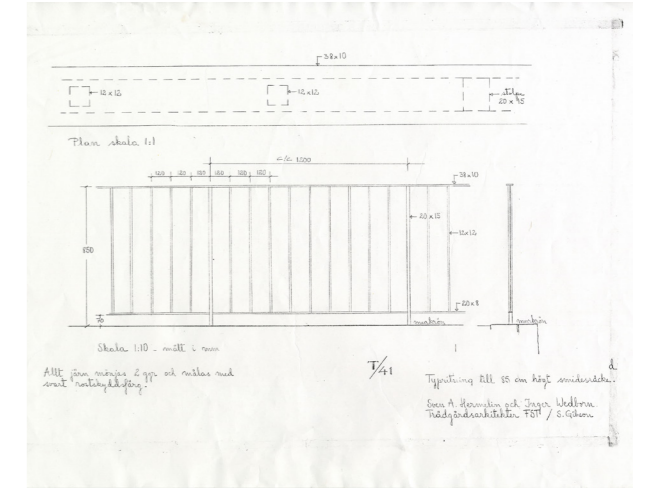 38x10
12x12
12x12
stolpe
20 x 35
Plan skala 1:1
c/c 1200
120 120 120 120 120 120
38x10
20x15
12x12
850
20x8
70
markrön
markrön
Skala 1:10 - mått i mm
Allt järn mönjas 2 ggr och målas med
svart rostskyddsfärg.
T/41
Typritning till 85 cm högt smidesräcke.
Sven A. Hermelin och Inger Wedborn
Trädgårdsarkitekter FST / S. Gibson